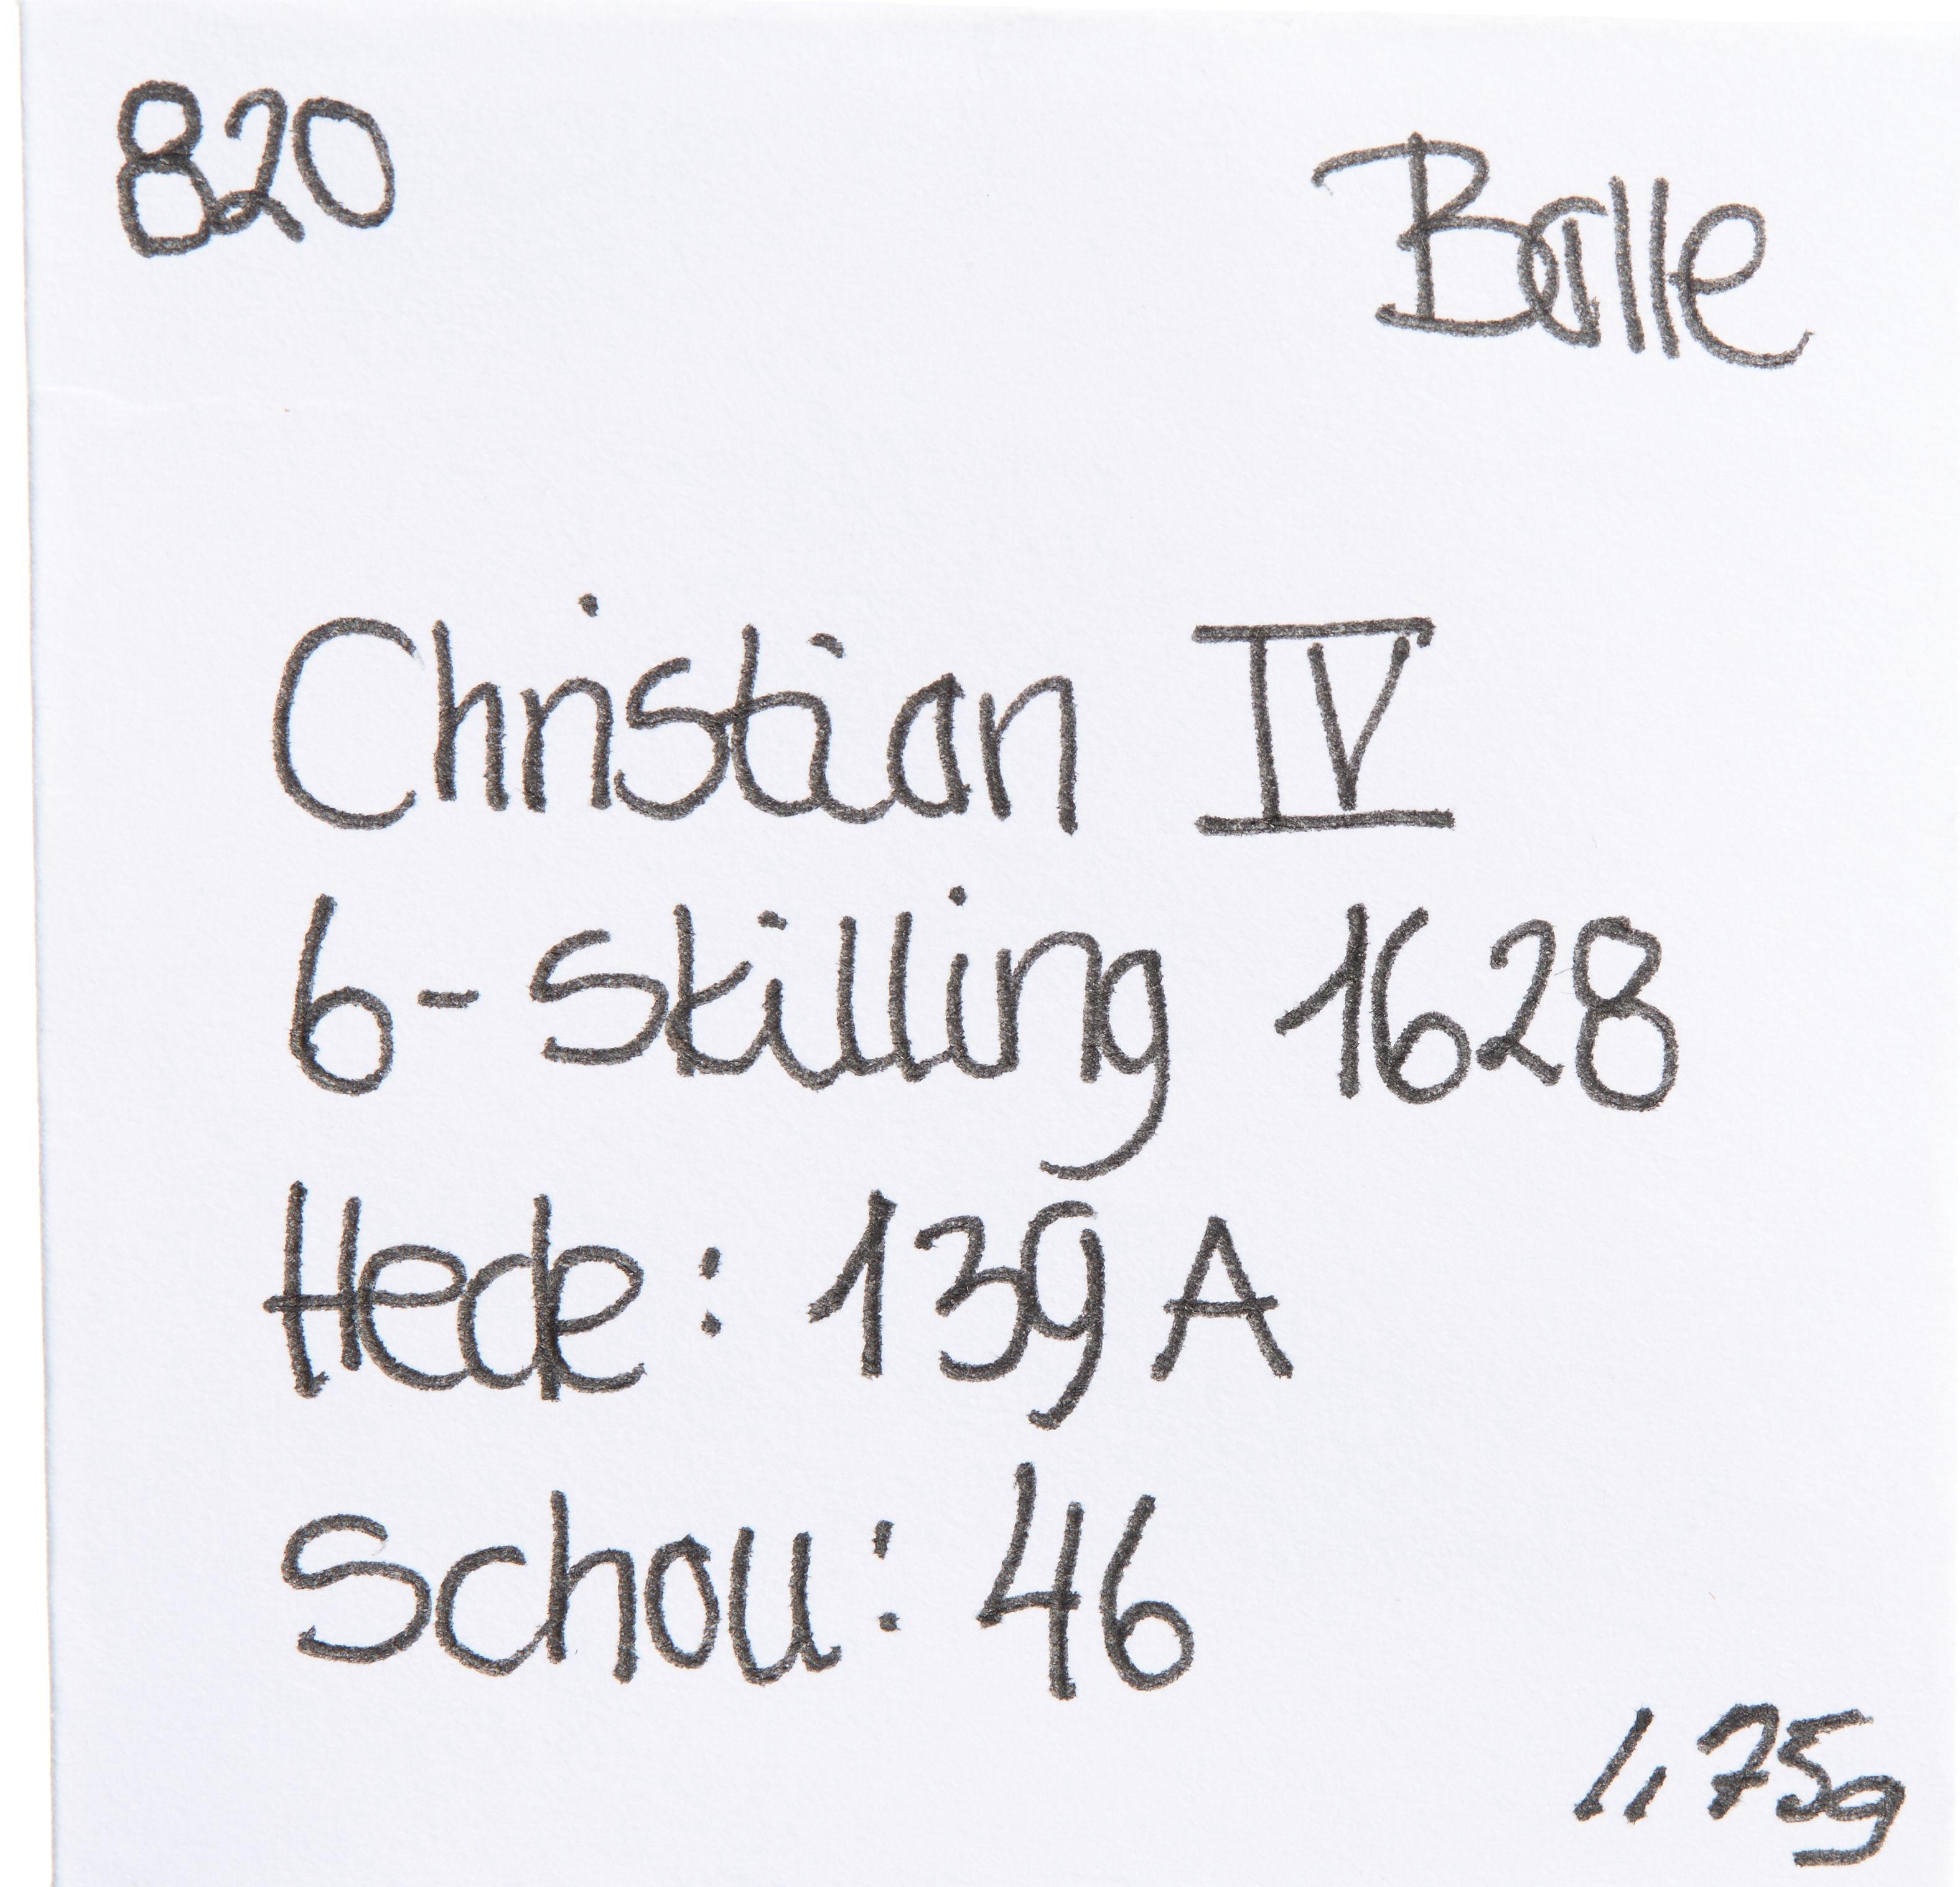 820
Balle
Christian IV
6-Skilling 1628
Hede: 139 A
Schou: 46
1,75g